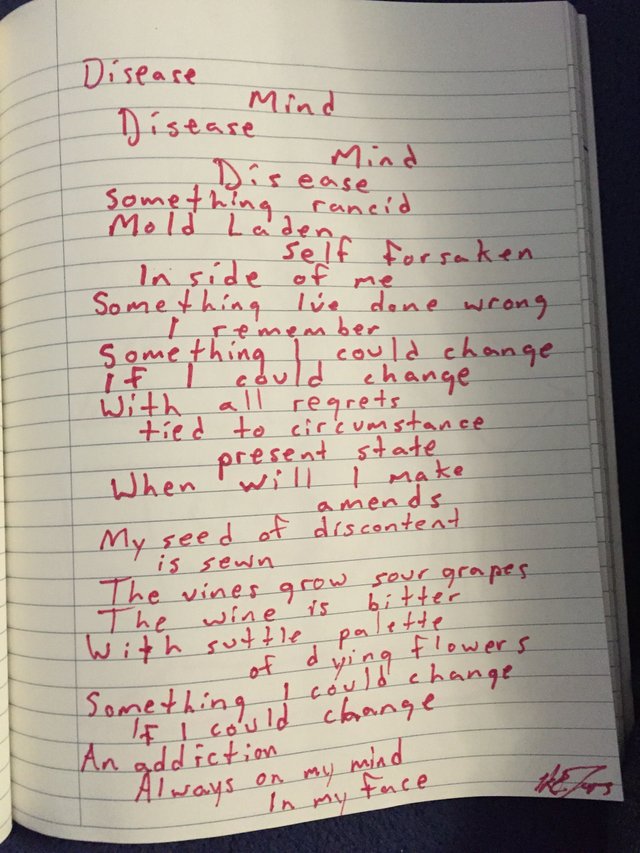 Disease
Mind
Disease
Mind
Disease
Something rancid
Mold Laden
Self forsaken
In side of me
Something I've done wrong
I remember
Something I could change
If I could change
With all regrets
tied to circumstance
present state
When will I make
amends
My seed of discontent
is sewn
The vines grow sour grapes
The wine is bitter
With suttle palette
of dying flowers
Something I could change
If I could change
An addiction
Always on my mind
In my face